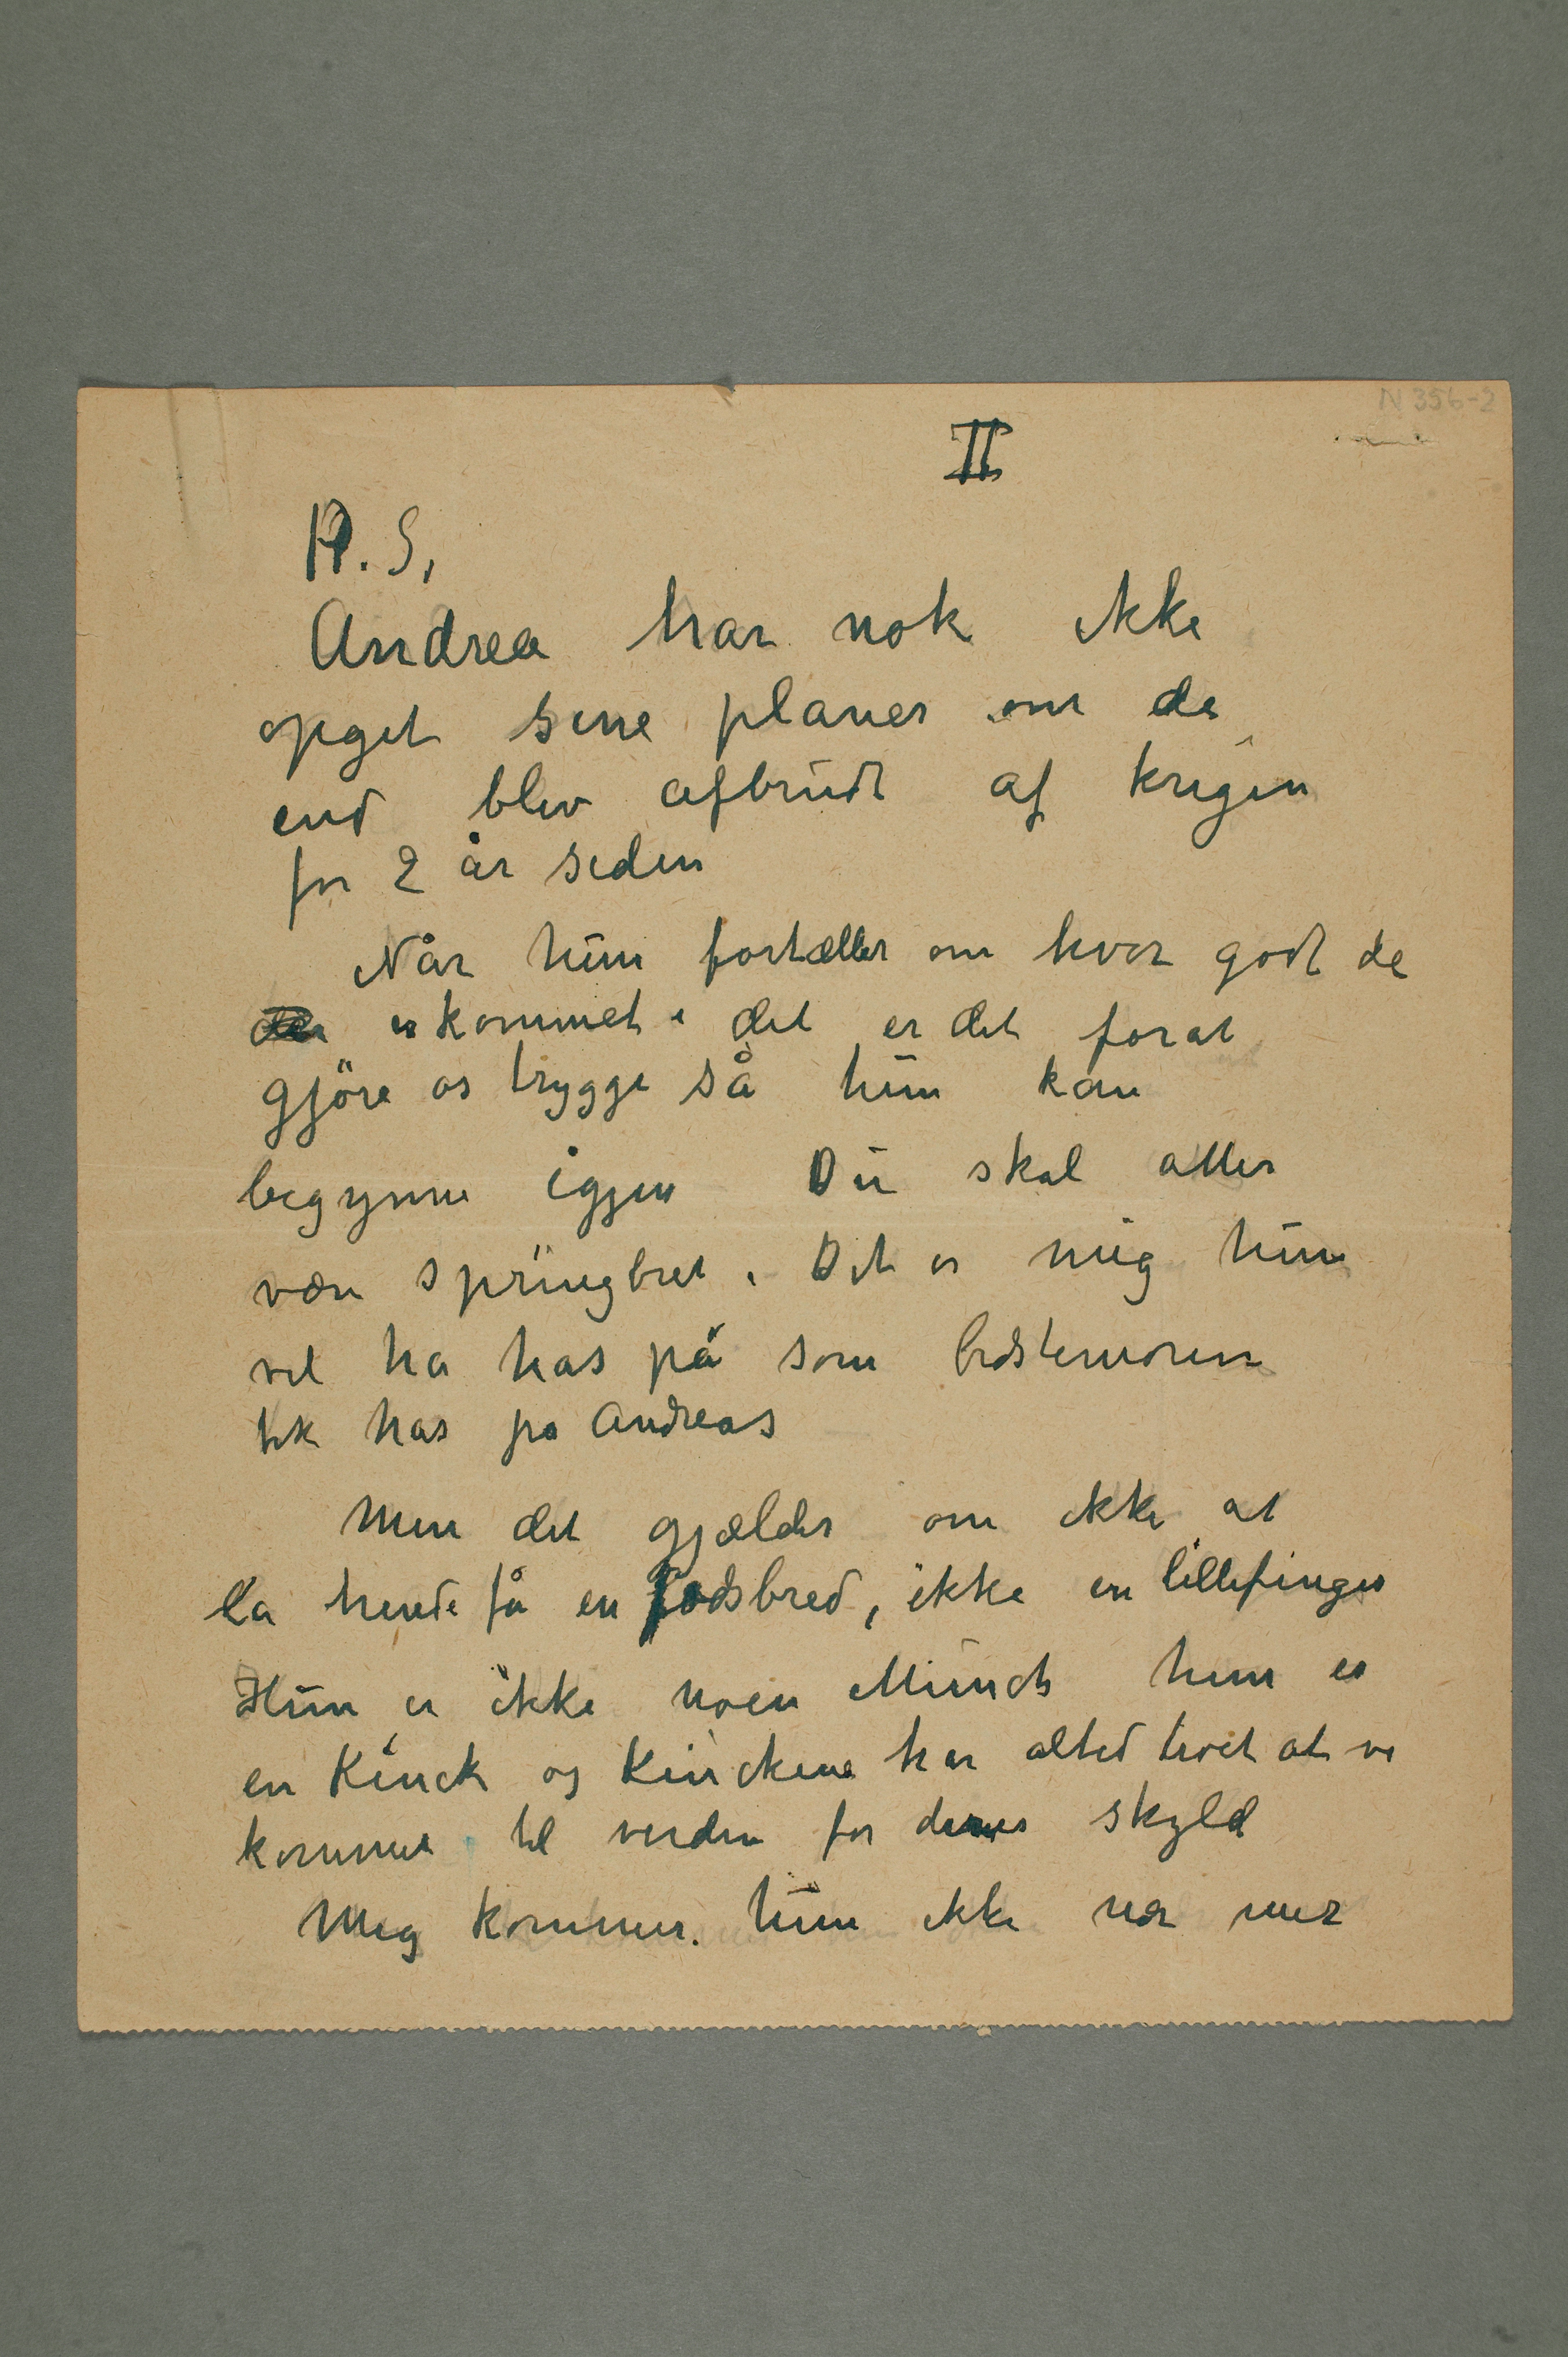 N 356-2
II
P.S,
Andrea har nok ikke
opget sine planer om de
end blev afbrudt af krigen
for 2 år siden
Når hun fortæller om hvor godt de
er kommet i det er det forat
gjöre os trygge så hun kan
begynne igjen Du skal atter
være springbret. Det er mig hun
vil ha has på som bedstemoren
tok has på Andreas
Men det gjælder om ikke at
la hende få en fodsbred, ikke en lillefinger
Hun er ikke noen Munch hun er
en Kinck og Kinckene har altid troet at vi
kommet til verden for deres skyld
Mig kommer hun ikke nær mer